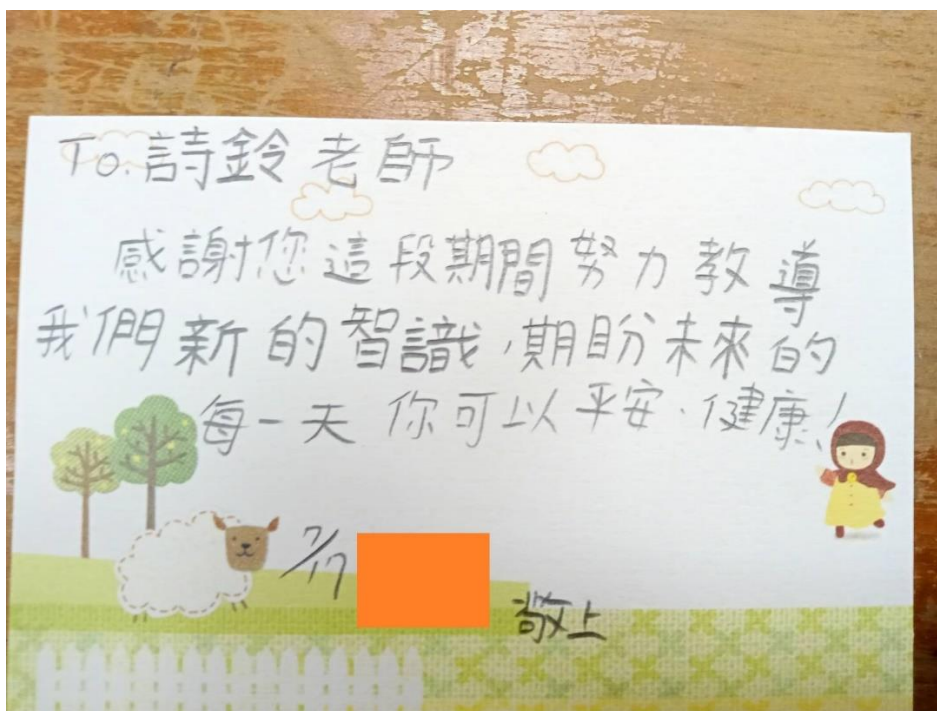 To. 詩鈴 老師
感謝您這段期間努力教導
我們新的智識,期盼未來的
每一天 你可以平安、健康!
7/17
敬上